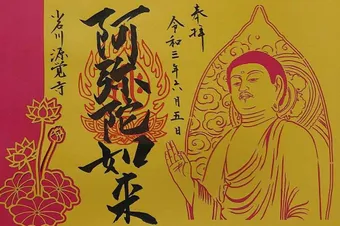 奉拝
令和三年六月五日
阿弥陀如来
小石川 源覚寺